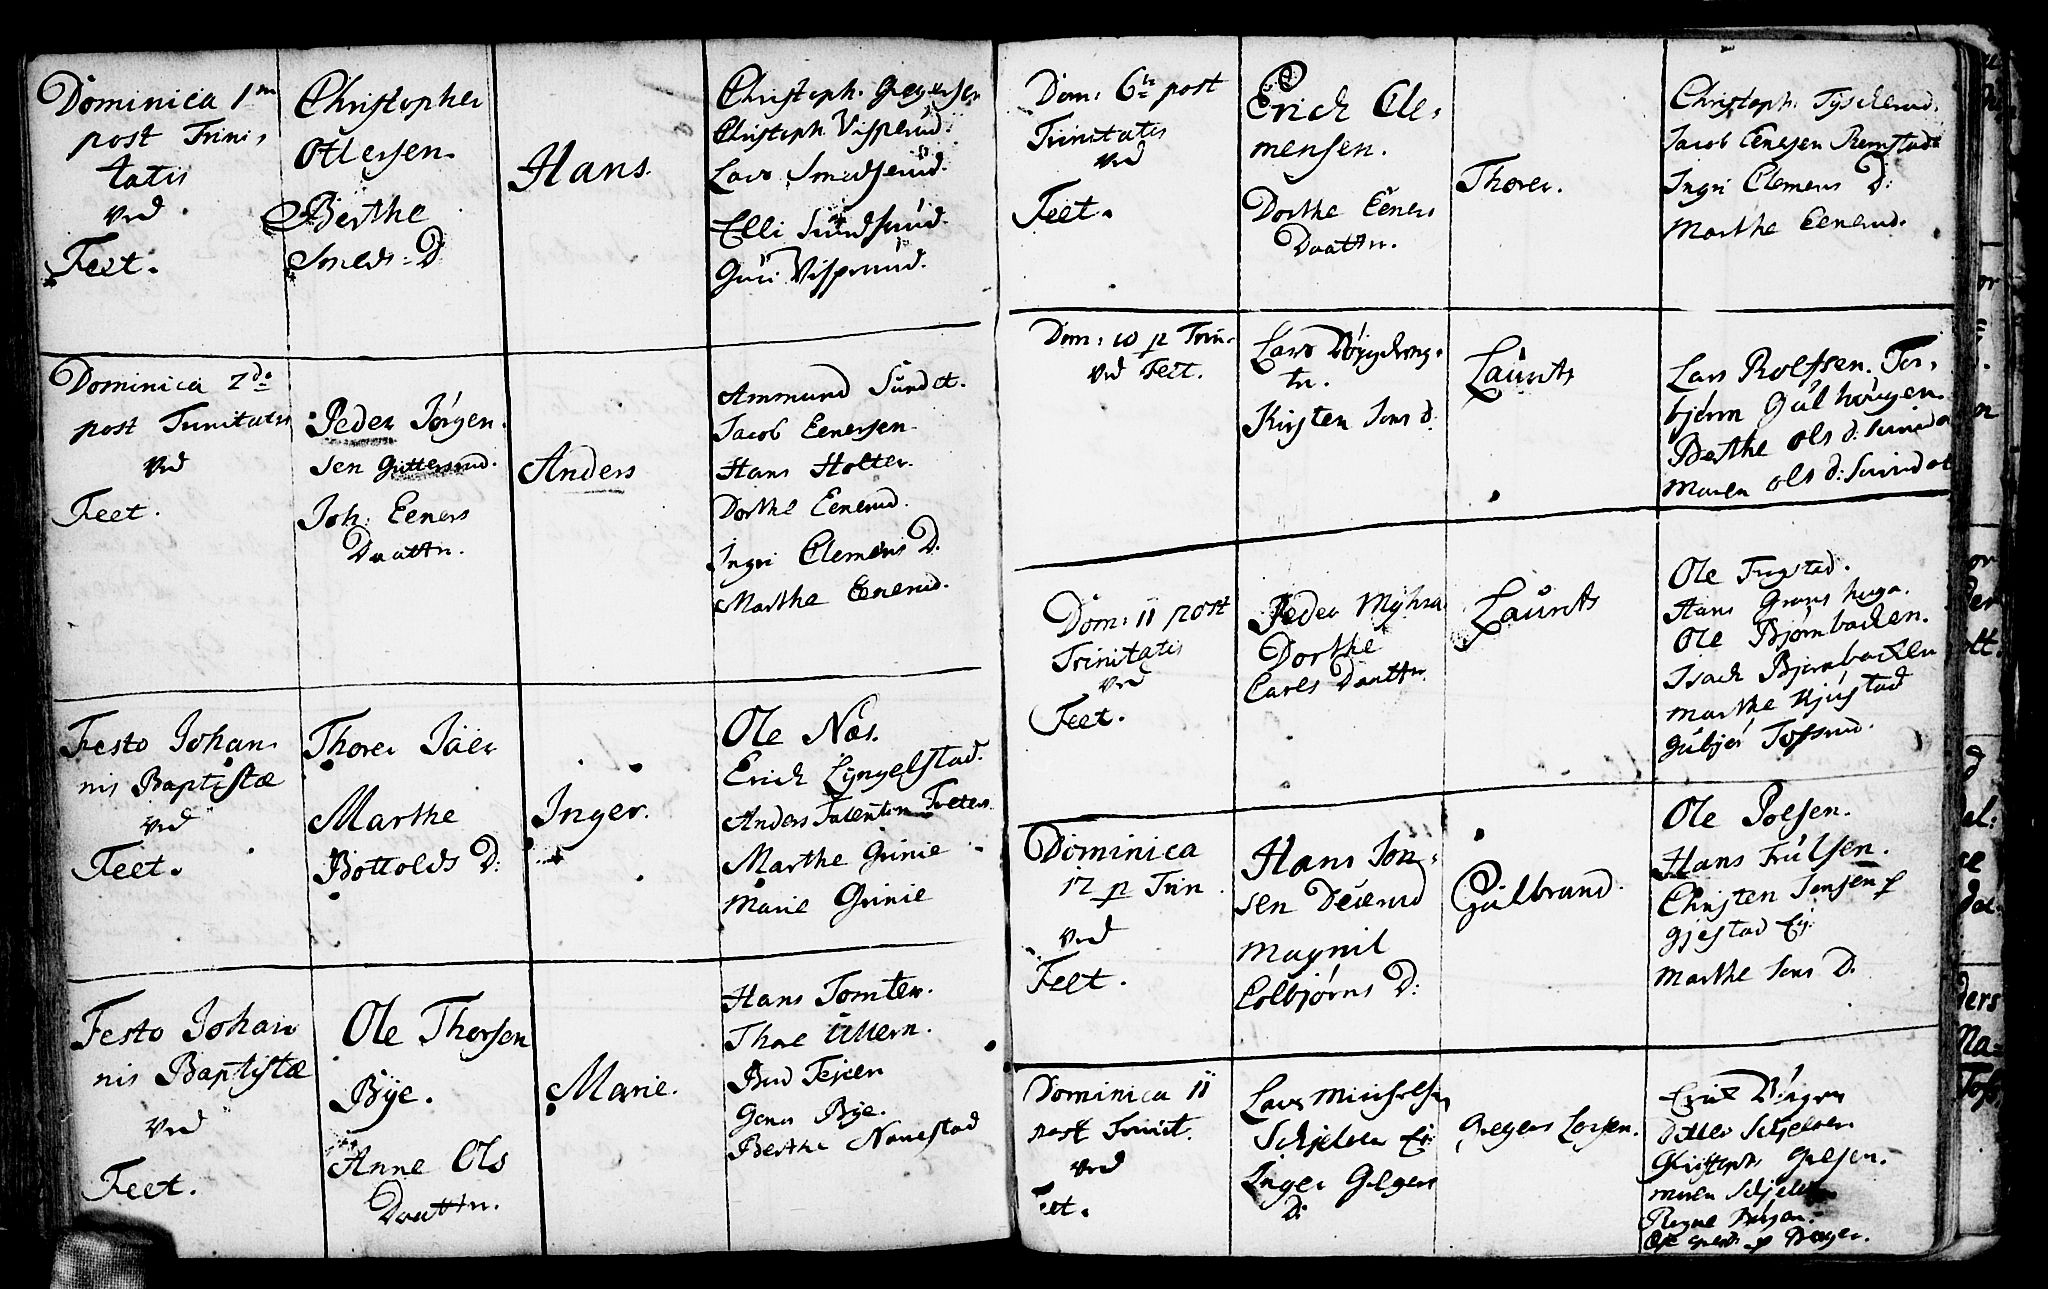 Dominica 1m
post Trini,
tatis
ved
Feet.
Christopher
Ottersen.
Berthe
Smeds: D
Hans.
Christoph. Gregersen
Christoph Visperud.
Lars Smedserud.
Elli Sundsrud.
Guri Visperud.
Dominica 2de
post Trinitatis
ved
Feet.
Peder Jörgen.
sen Guttersrud.
Joh: Eeners
Daattr.
Anders
Ammund Sundet.
Jacob Eenersen
Hans Holter.
Dorthe Eenerud.
Ingri Clemens D.
Marthe Eenerud.
Festo Johan.
nis Baptistæ
ved
Feet.
Thorer Jäer
Marthe
Bottolds D:
Inger.
Ole Næs.
Erich Lyngelstad.
Anders Freter.
Marthe Grinie
Marie Grinie
Festo Johan
nis Baptistæ
ved
Feet.
Ole Thorsen
Bye.
Anne Ols
Daattr.
Marie.
Hans Tomter.
Thore Ullern.
Bye.
Berthe Nanestad
Dom: 6te post
Trinitatis
ved
Feet.
Erich Cle,
mensen.
Dorthe Eeners
Daattr.
Thorer.
Christoph: Tyskerud.
Jacob Eenesen Remstad
Ingri Clemens D:
Marthe Eenerud.
Dom: 10 p Trin.
ved Feet.
Lars
tr.
Kirsten Jens d.
Laurits
Lars Rolfsen. Tor,
björn Gulhougen.
Berthe Ols d:
Maren Ols d:
Dom: 11 post
Trinitatis
ved
Feet.
Peder Myhra
Dorthe
Carls Daattr.
Laurits
Ole
Hans
Ole Bjørnbacken.
Isach Bjørnbacken
Marthe Kjustad
Dominica
12 p Trin.
ved
Feet.
Hans Jon,
sen
Magnil
Colbjørns D:
Gulbrand.
Ole Poelsen.
Hans Trulsen.
Christen Jensen
Gjestad Ej:
Marthe Jens D.
Dominica 11
post Trinit.
ved
Feet.
Lars
Schjelver Ej:
Inger Gregers
D:
Gregers Larsen.
Erich
Schjelver
Christoph
Maren